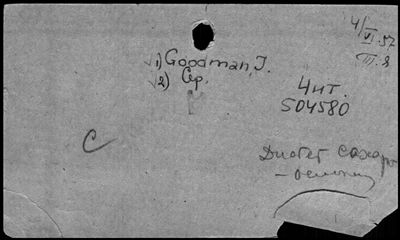 4/VI.57
III.8
√1) Goodman, J.
√2) Сер.
Чит.
504580
С
Диабет сахарн